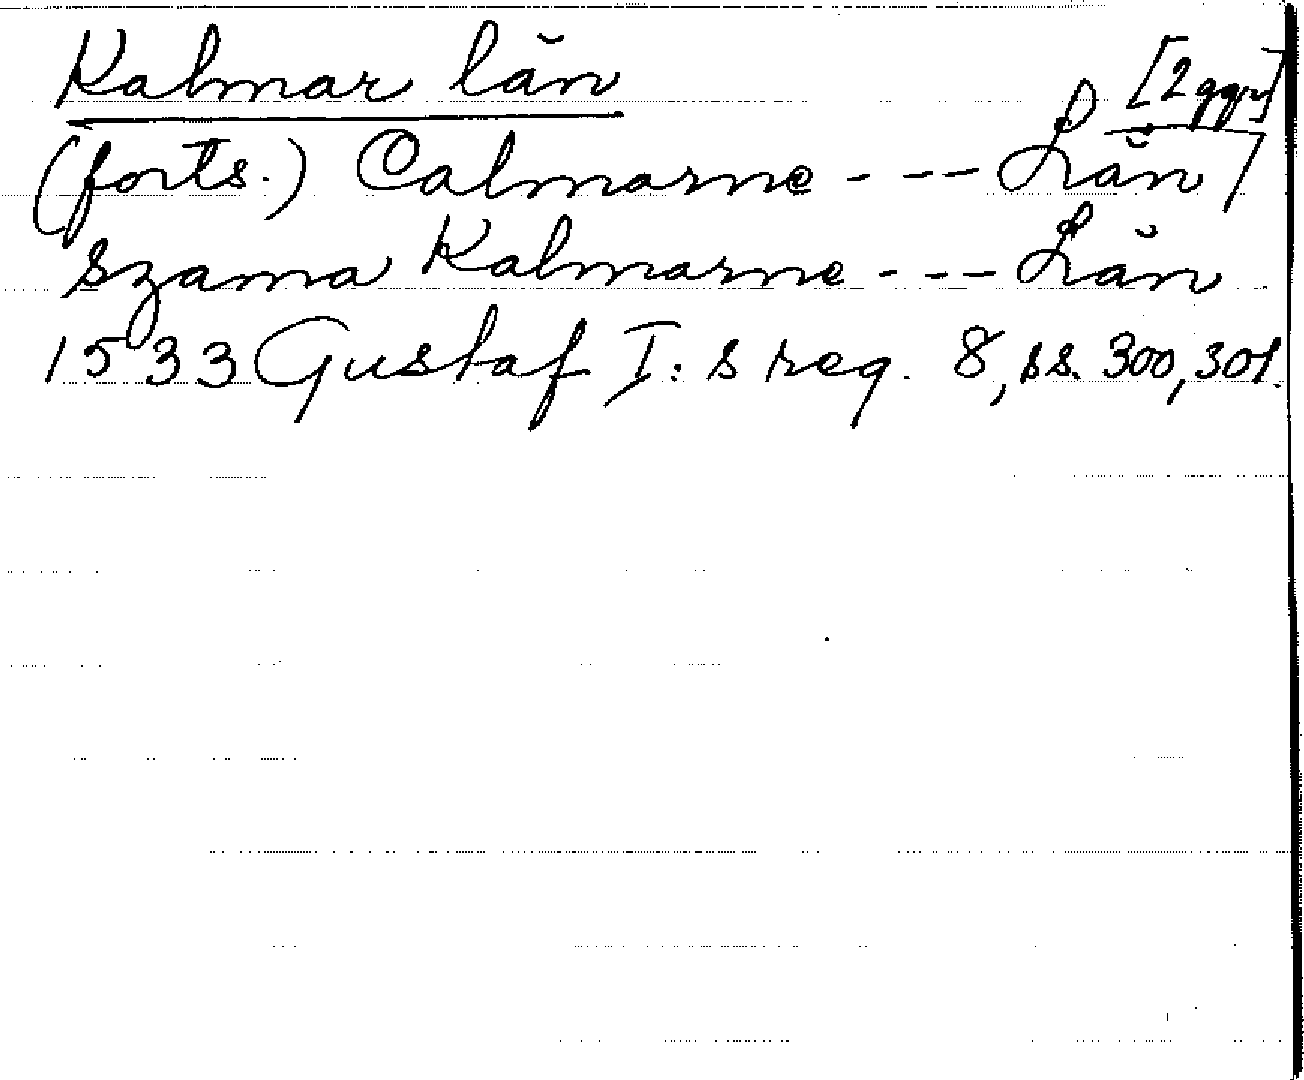 Kalmar län
(forts.) Calmarne - - - Län / [2 ggr]
szama Kalmarne - - - Län
1533 Gustaf I:s reg. 8, ss. 300, 301.